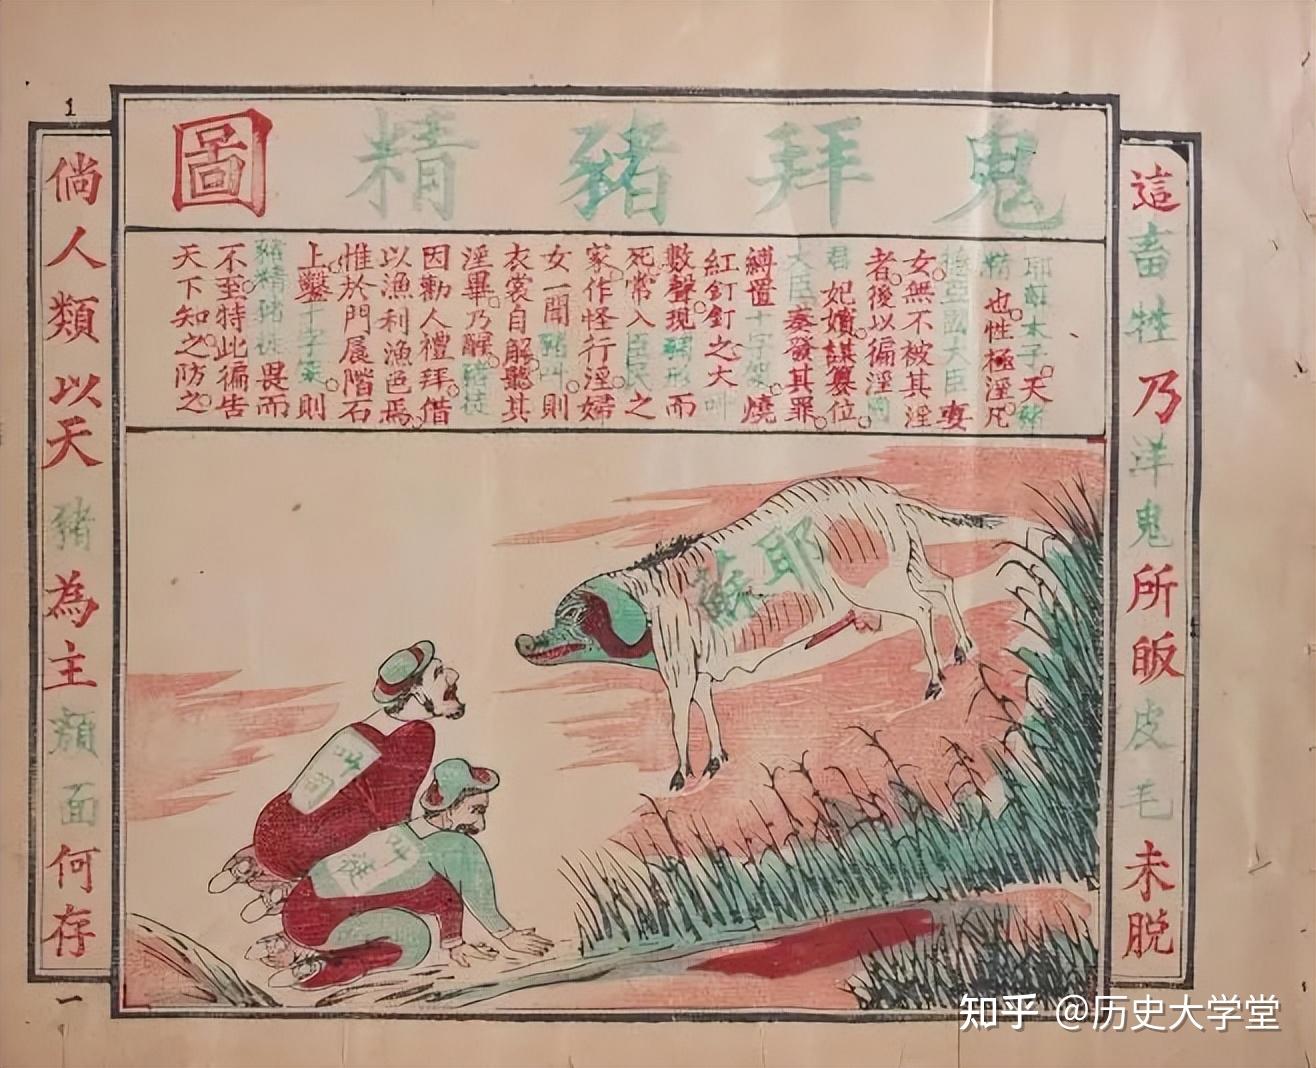 鬼拜豬精圖
這畜牲乃洋鬼所皈皮毛未脫
耶穌太子。天豬
精也。性極淫。凡
國大臣妻
女。無不被其淫
者。後以徧淫國
君妃嬪。謀篡位。
大臣奏發其罪。
縛置十字架。燒
紅釘釘之。大叫
數聲。現豬形而
死。常入臣民之
家。作怪行淫。婦
女一聞豬叫。則
衣裳自解。聽其
淫畢乃醒。豬徒
因勸人禮拜。借
以漁利漁色焉。
惟於門扆階石
上鑿十字架。則
豬精豬徒畏而
不至。特此徧告
天下知之。防之。
1
倘人類以天豬為主顏面何存
一
耶蘇
叫司
叫徒
知乎 @历史大学堂